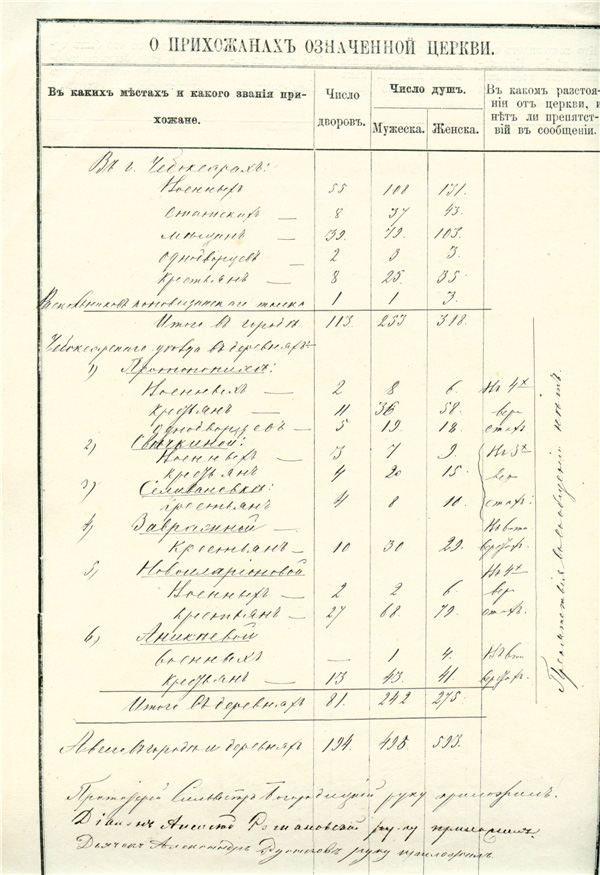 О ПРИХОЖАНАХЪ ОЗНАЧЕННОЙ ЦЕРКВИ.
Въ какихъ мѣстахъ и какого званія прихожане.
Число дворовъ.
Число душъ.
Мужеска. Женска.
Въ какомъ разстояніи отъ церкви, и нѣтъ ли препятствій въ сообщеніи.
Въ г. Чебоксарахъ:
Военныхъ 55 108 131.
Статскихъ — 8 37 43.
Мѣщанъ — 39. 79. 103.
Однодворцевъ 2 3 3.
Крестьянъ — 8 25. 35.
1 1 3.
Итого въ городѣ 113. 253 318.
Чебоксарскаго уѣзда въ деревняхъ:
1) Протопопихѣ:
Военныхъ — 2 8 6. Въ 4х
Крестьянъ — 11 36 58. вер
Однодворцевъ — 5 19 18. стахъ
2) Свечкиной:
Военныхъ — 3 7 9. Въ 3х
Крестьянъ 4 20 15. вер
3) Селивановкѣ:
Крестьянъ 4 8 10. стахъ:
4) Завражной —
Крестьянъ — 10 30 29.
5) Новоиларіоновой Въ 4х
Военныхъ — 2 2 6. вер
Крестьянъ — 27 68. 79. стахъ.
6) Аникеевой
Военныхъ — 1 4.
Крестьянъ — 13 43. 41.
Итого въ деревняхъ 81. 242 275.
А всего въ городѣ и деревняхъ 194. 495. 593.
Препятствія въ сообщеніи нѣтъ.
Протоіерей Сильвестръ Богородицкій руку приложилъ.
Діаконъ Романовскій руку приложилъ.
Дьячекъ Александръ руку приложилъ.